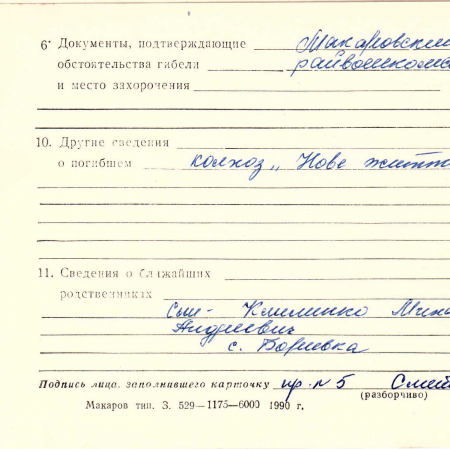 6· Документы, подтверждающие Макаровский
обстоятельства гибели райвоенкомат
и место захоронения
10. Другие сведения
о погибшем колхоз „Нове життя
11. Сведения о ближайших
родственниках
Сын - Клименко Миха
Андреевич
с. Борщевка
Подпись лица, заполнившего карточку пр. №5 Смей
(разборчиво)
Макаров тип. З. 529—1175—6000 1990 г.